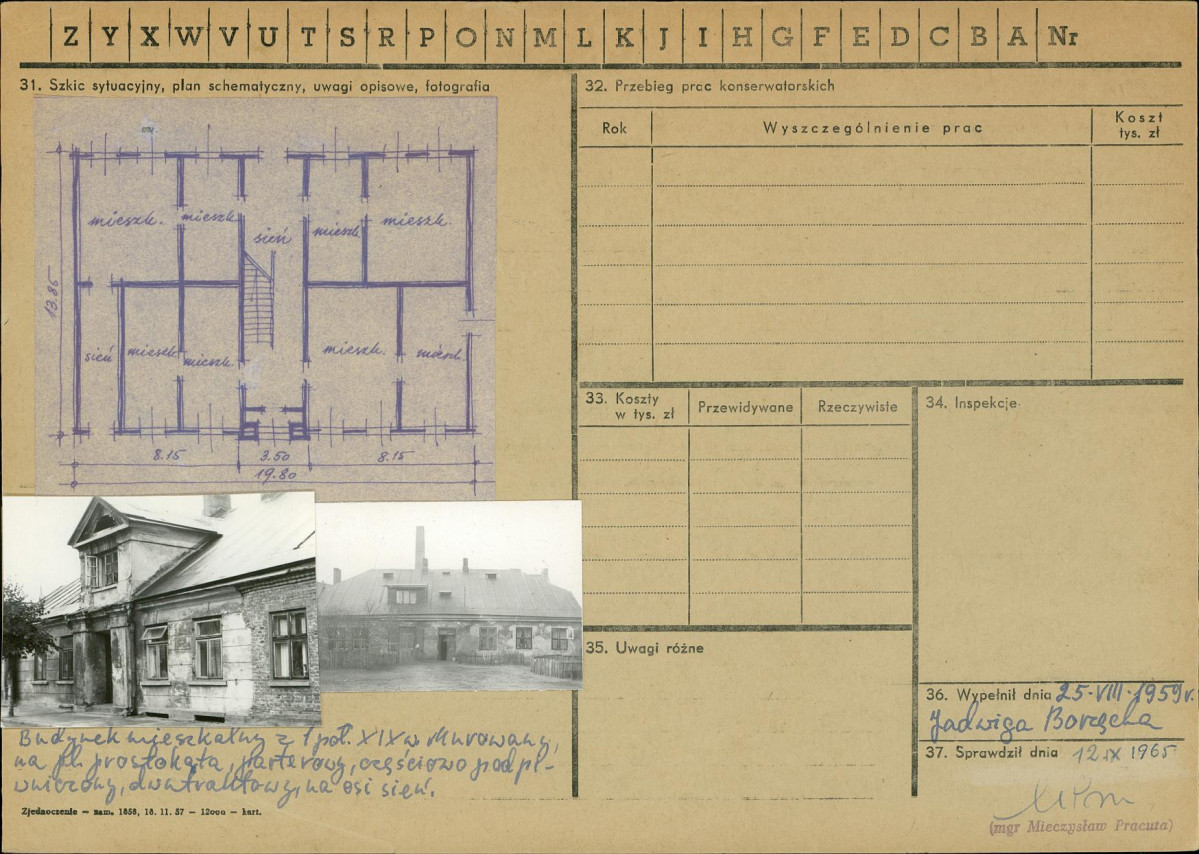 Z Y X W V U T S R P O N M L K J I H G F E D C B A Nr
31. Szkic sytuacyjny, plan schematyczny, uwagi opisowe, fotografia
mieszk. mieszk. sień mieszk. mieszk.
13.86
sień mieszk. mieszk. mieszk. mieszk.
8.15 3.50 8.15
19.80
Budynek mieszkalny z 1 poł. XIX w. Murowany,
na pl. prostokąta, parterowy, częściowo podpi-
wniczony, dwutraktowy, na osi sień.
Zjednoczenie — zam. 1858, 18. 11. 57 — 12000 — kart.
32. Przebieg prac konserwatorskich
Rok Wyszczególnienie prac Koszt
tys. zł
33. Koszty
w tys. zł Przewidywane Rzeczywiste
34. Inspekcje
35. Uwagi różne
36. Wypełnił dnia 25·VIII·1959 r.
Jadwiga Borzęcka
37. Sprawdził dnia 12 IX 1965
(mgr Mieczysław Pracuta)